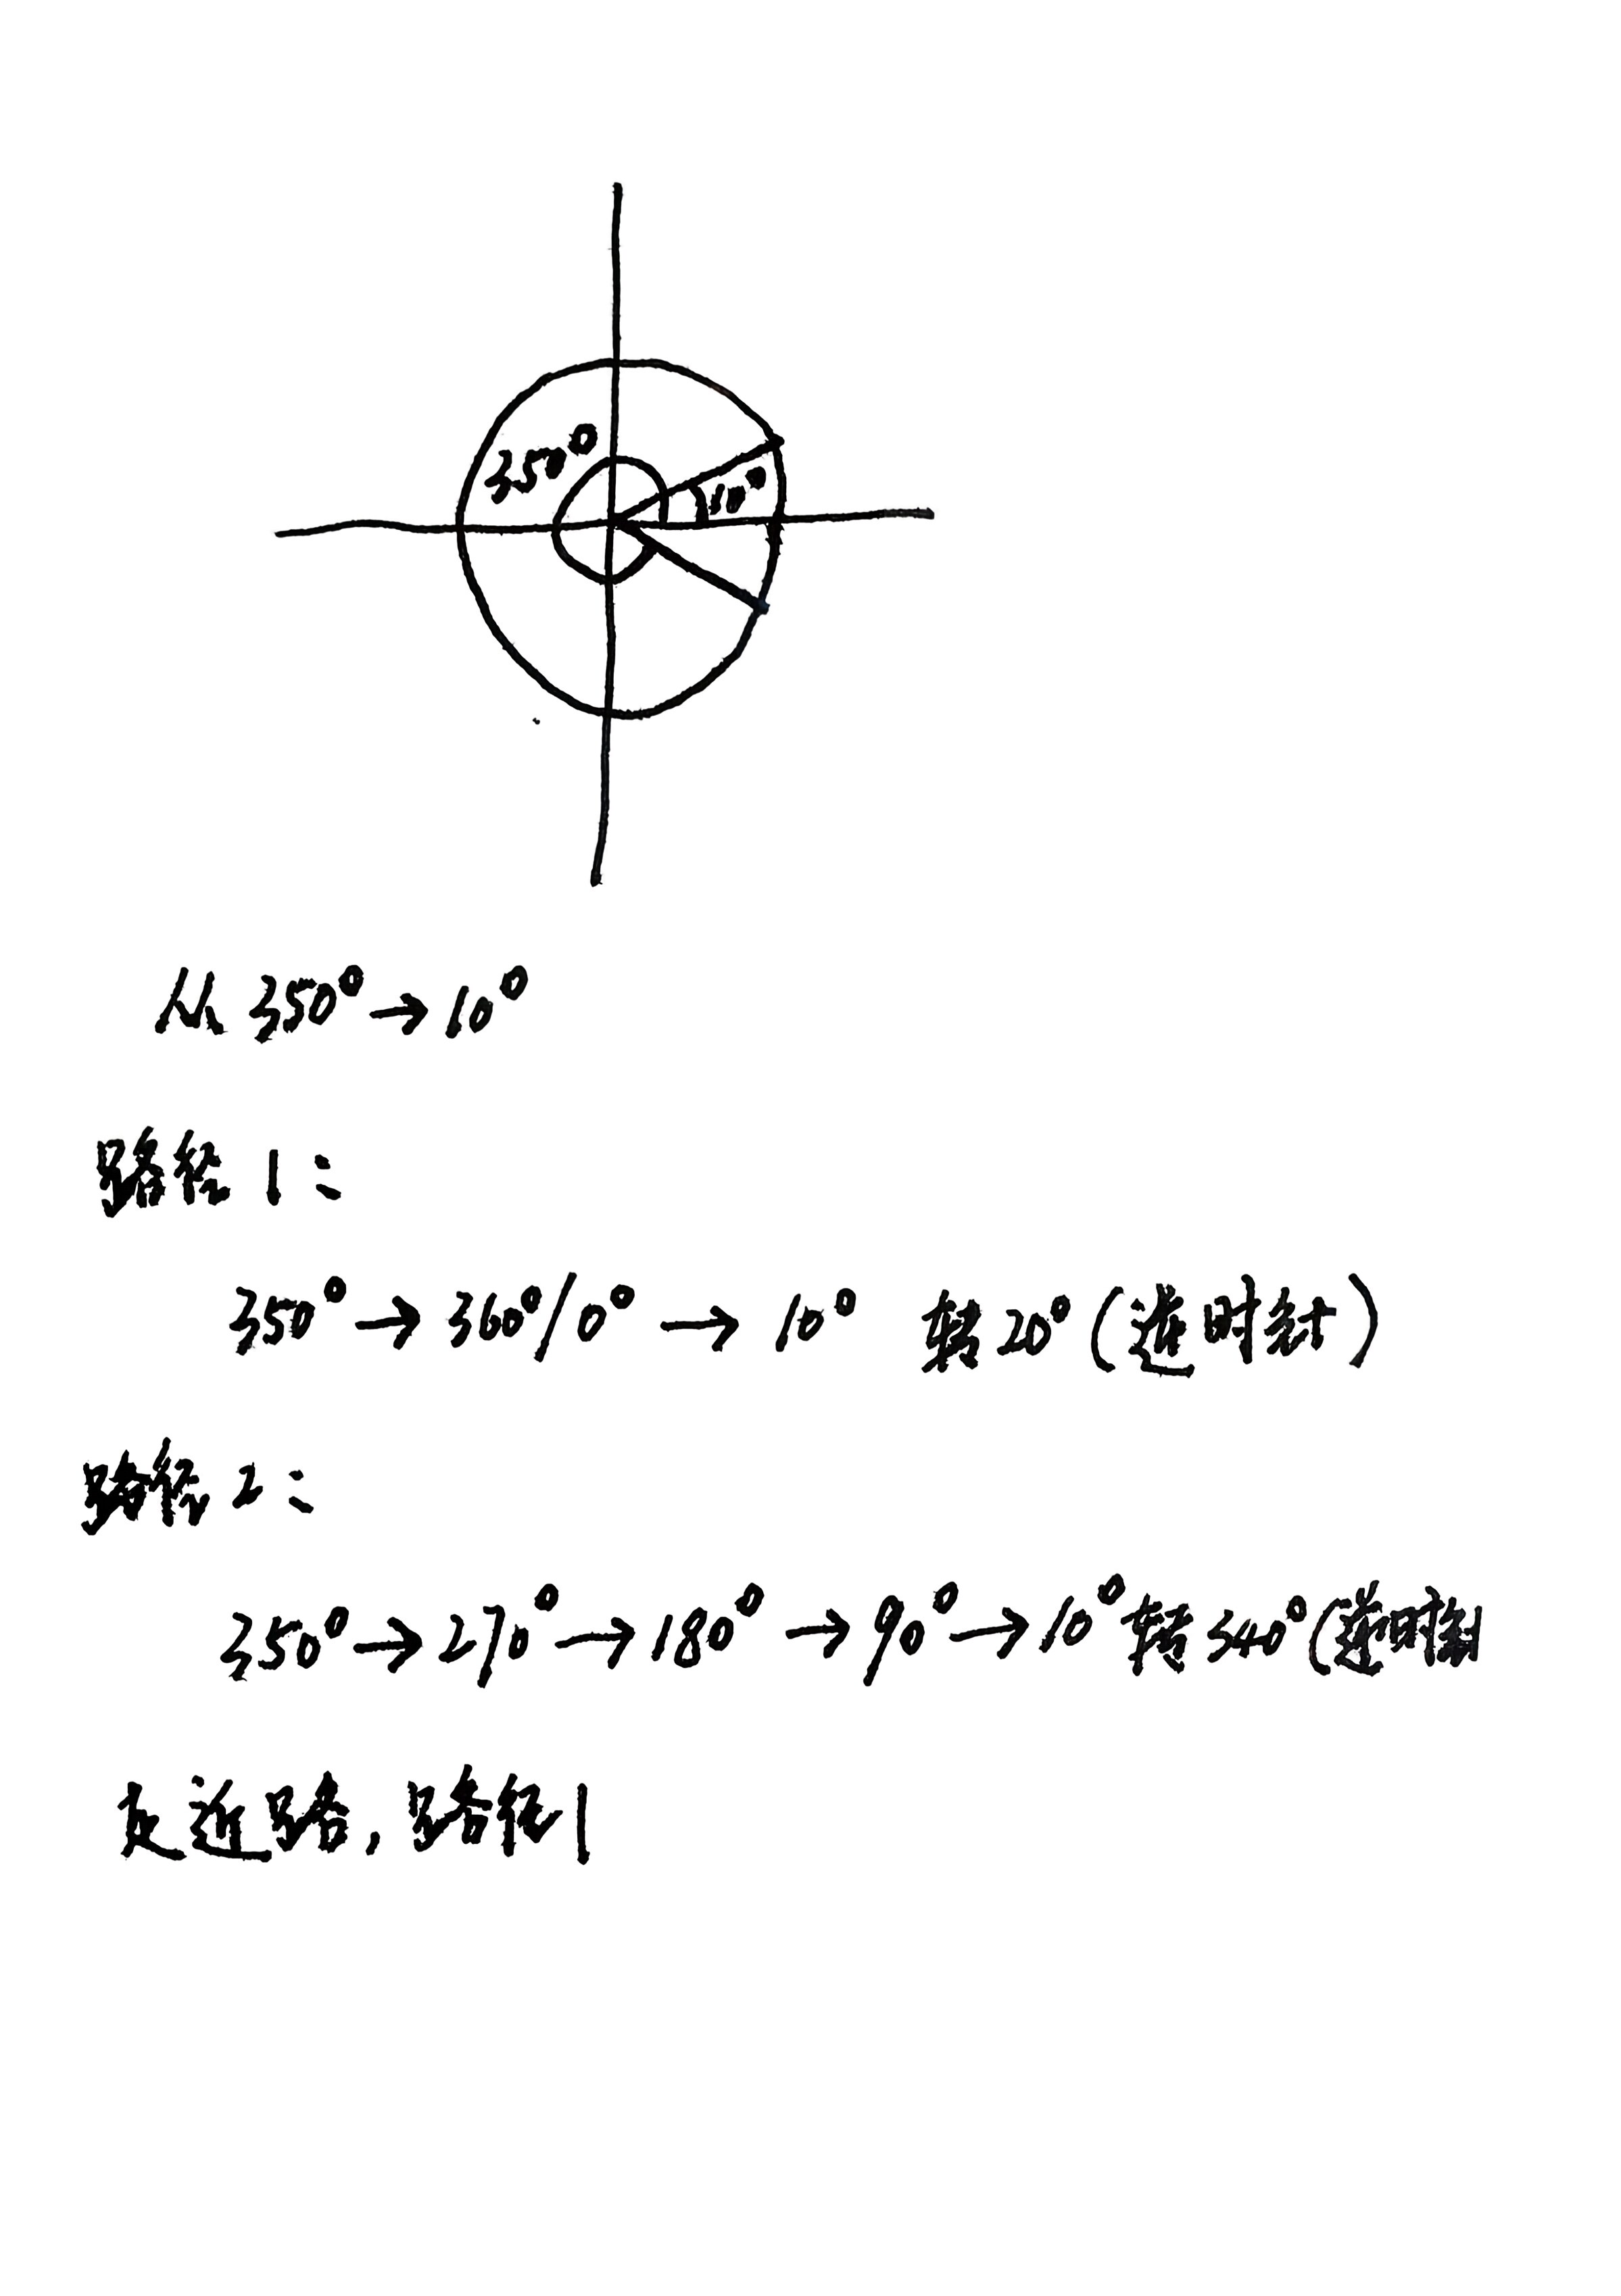 350°
10°
从350°→10°
路径1:
350°→360°/0°→10° 转20°(逆时针)
路径2:
350°→270°→180°→90°→10°转340°(逆时针
走近路,路径1